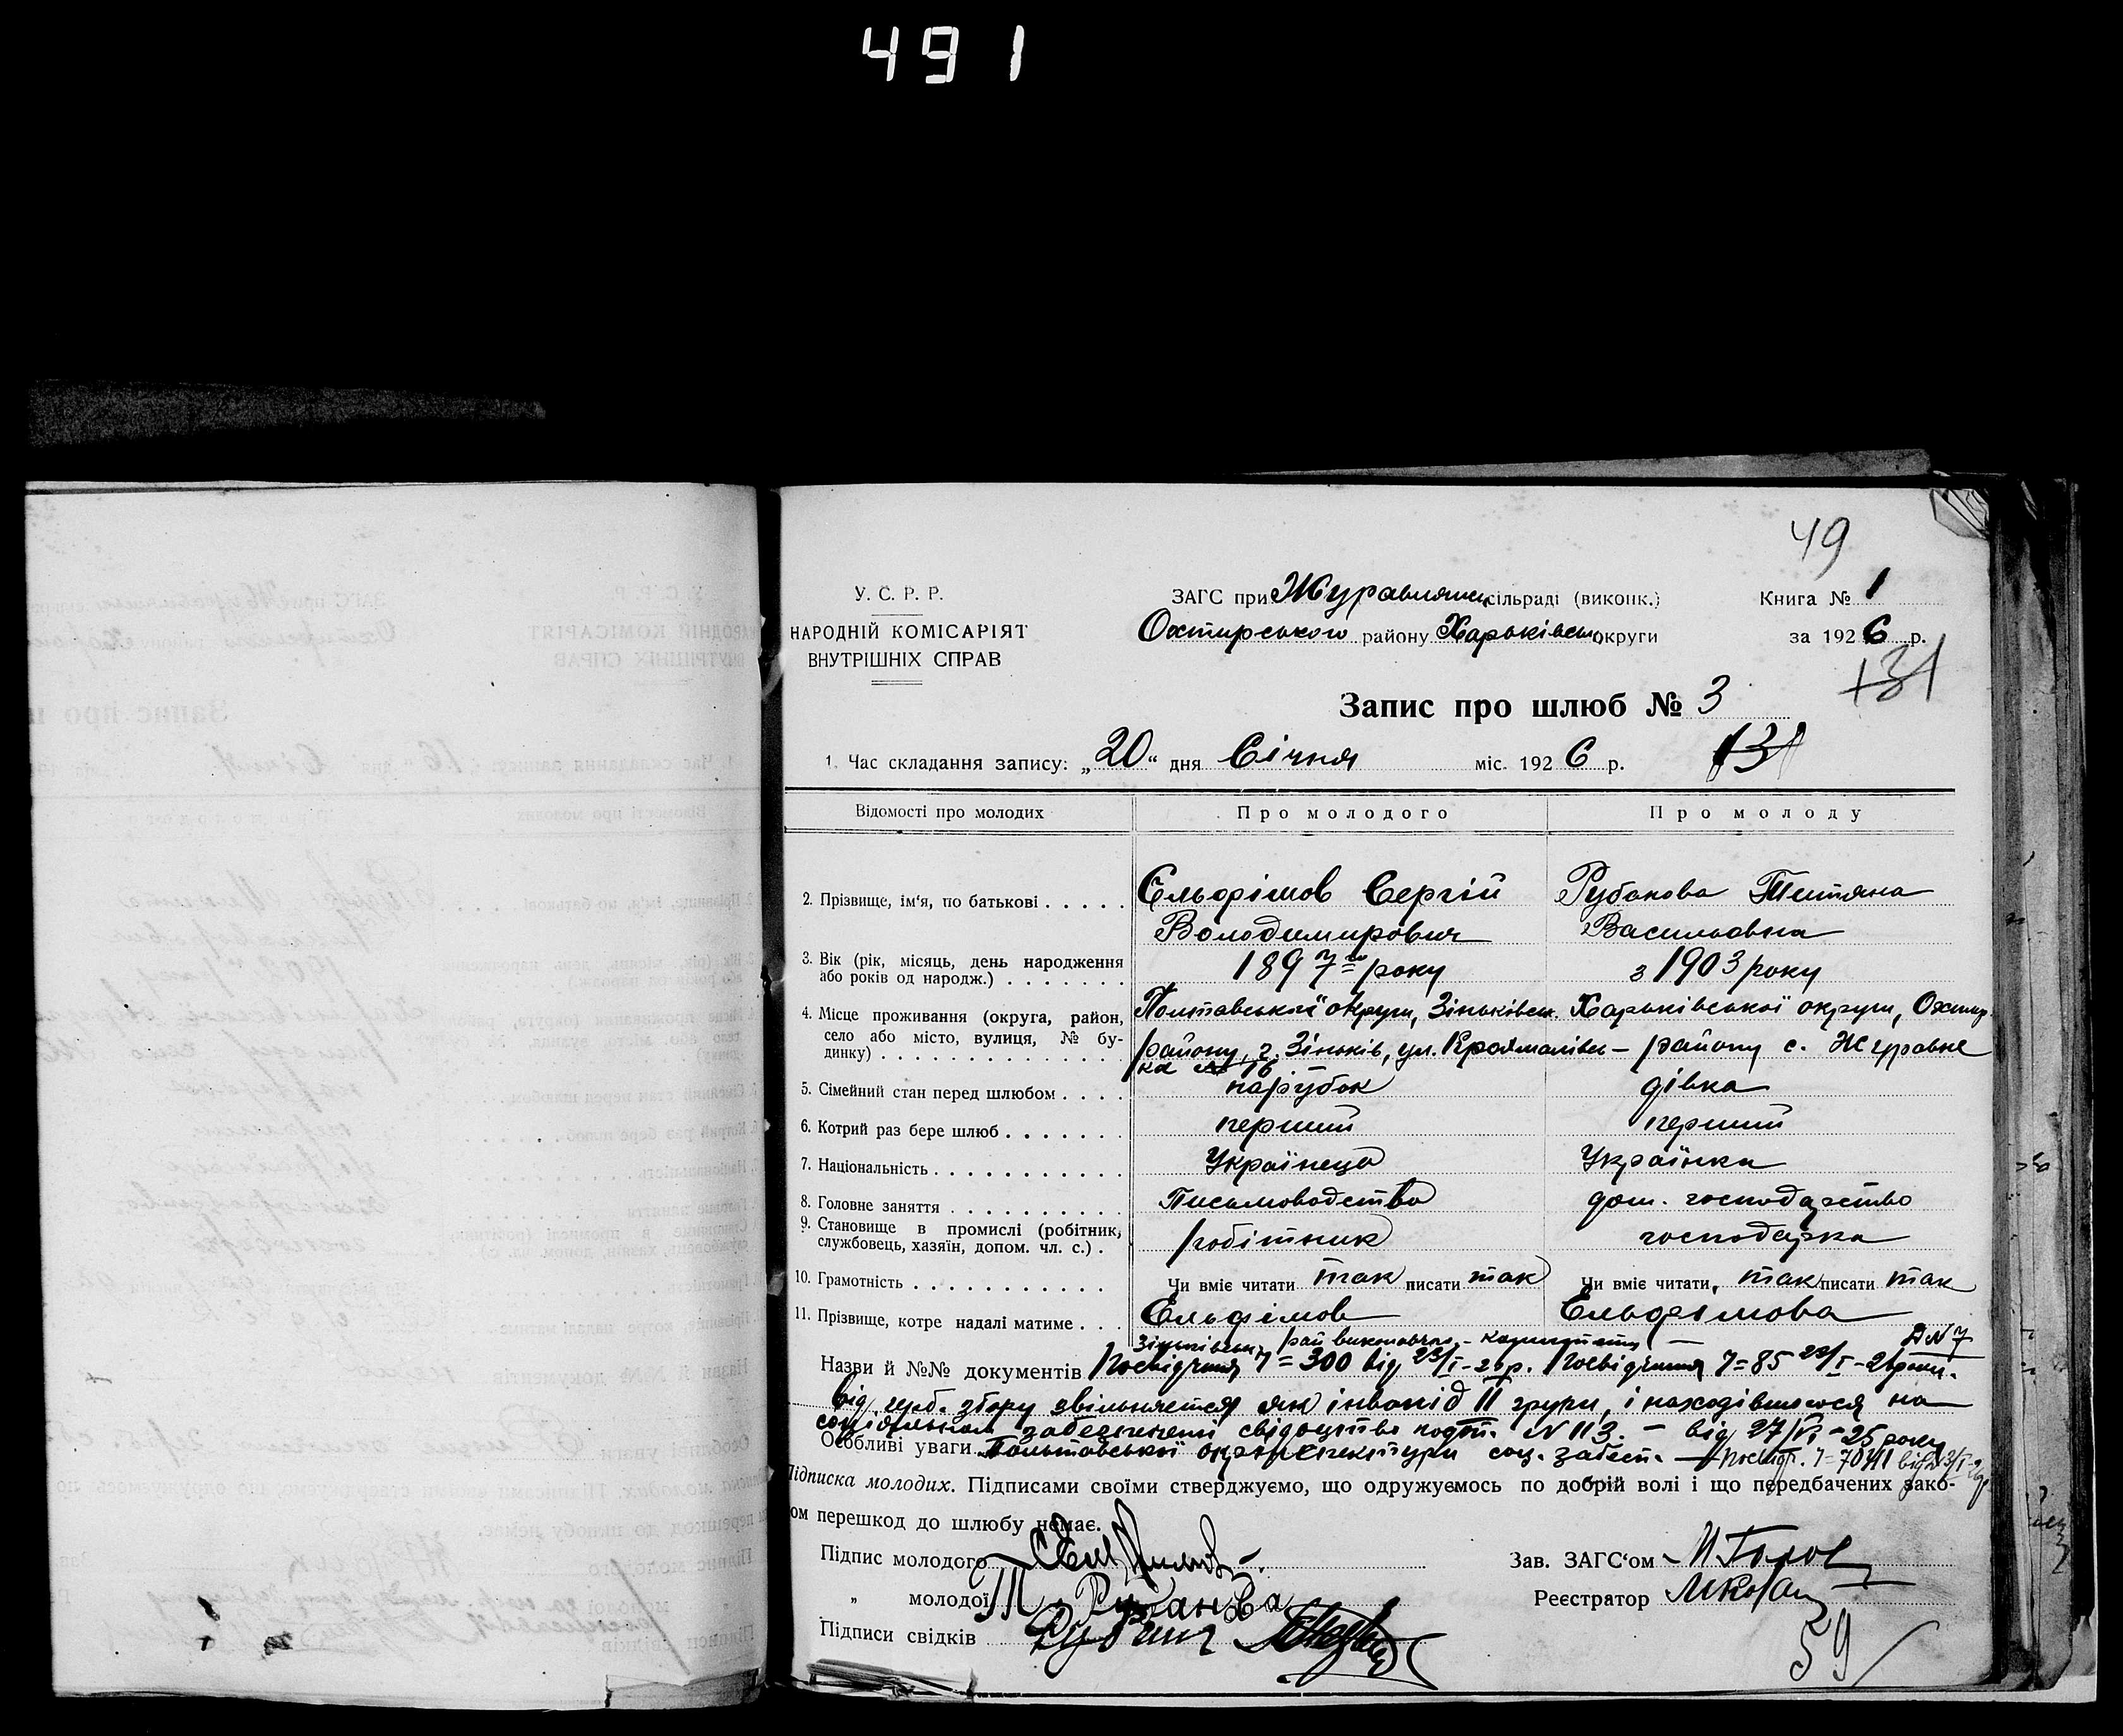 491
49
У. С. Р. Р.
НАРОДНІЙ КОМІСАРІЯТ
ВНУТРІШНІХ СПРАВ
ЗАГС при Журавлянськ сільраді (виконк.)
Охтирського району Харьківськ округи
Книга № 1
за 1926 р.
131
Запис про шлюб № 3
1. Час складання запису: „20“ дня Січня міс. 1926 р.
131
Відомості про молодих Про молодого Про молоду
2. Прізвище, ім'я, по батькові . . . . . Єльфімов Сергій Рубанова Титяна
Володимирович Васильовна
3. Вік (рік, місяць, день народження
або років од народж.) . . . . . . . 1897го року з 1903 року
4. Місце проживання (округа, район,
село або місто, вулиця, № бу-
динку) . . . . . . . . . . . . .
Полтавської округи, Зіньківськ. Харьківської округи, Охтир.
району, г. Зіньків, ул. району с. Журавне
ка № 16
5. Сімейний стан перед шлюбом . . . . парубок дівка
6. Котрий раз бере шлюб . . . . . . . перший перший
7. Національність . . . . . . . . . . . Українець Українка
8. Головне заняття . . . . . . . . . . . Письмоводство дом. господарство
9. Становище в промислі (робітник,
службовець, хазяїн, допом. чл. с.) . робітник господарка
10. Грамотність . . . . . . . . . . . . Чи вміє читати так писати так Чи вміє читати, так писати так
11. Прізвище, котре надалі матиме . . . Єльфімов Єльфімова
Зіньківськ. рай виконавчго
Назви й №№ документів Посвідчення 7=300 від 23/I-26р. Посвідчення 7=85
від герб. збору звільняется як інвалід II групи, і находівшогося на
соціальном забезпеченні свідоцтво № 113. - від 27/VI-25 року
Особливі уваги Полтавської окрінспектури соц. забезп.
Підписка молодих. Підписами своїми стверджуємо, що одружуємось по добрій волі і що передбачених зако-
ом перешкод до шлюбу немає.
Підпис молодого
„ молодої Т. Рубанова
Підписи свідків
Зав. ЗАГС'ом
Реєстратор
59